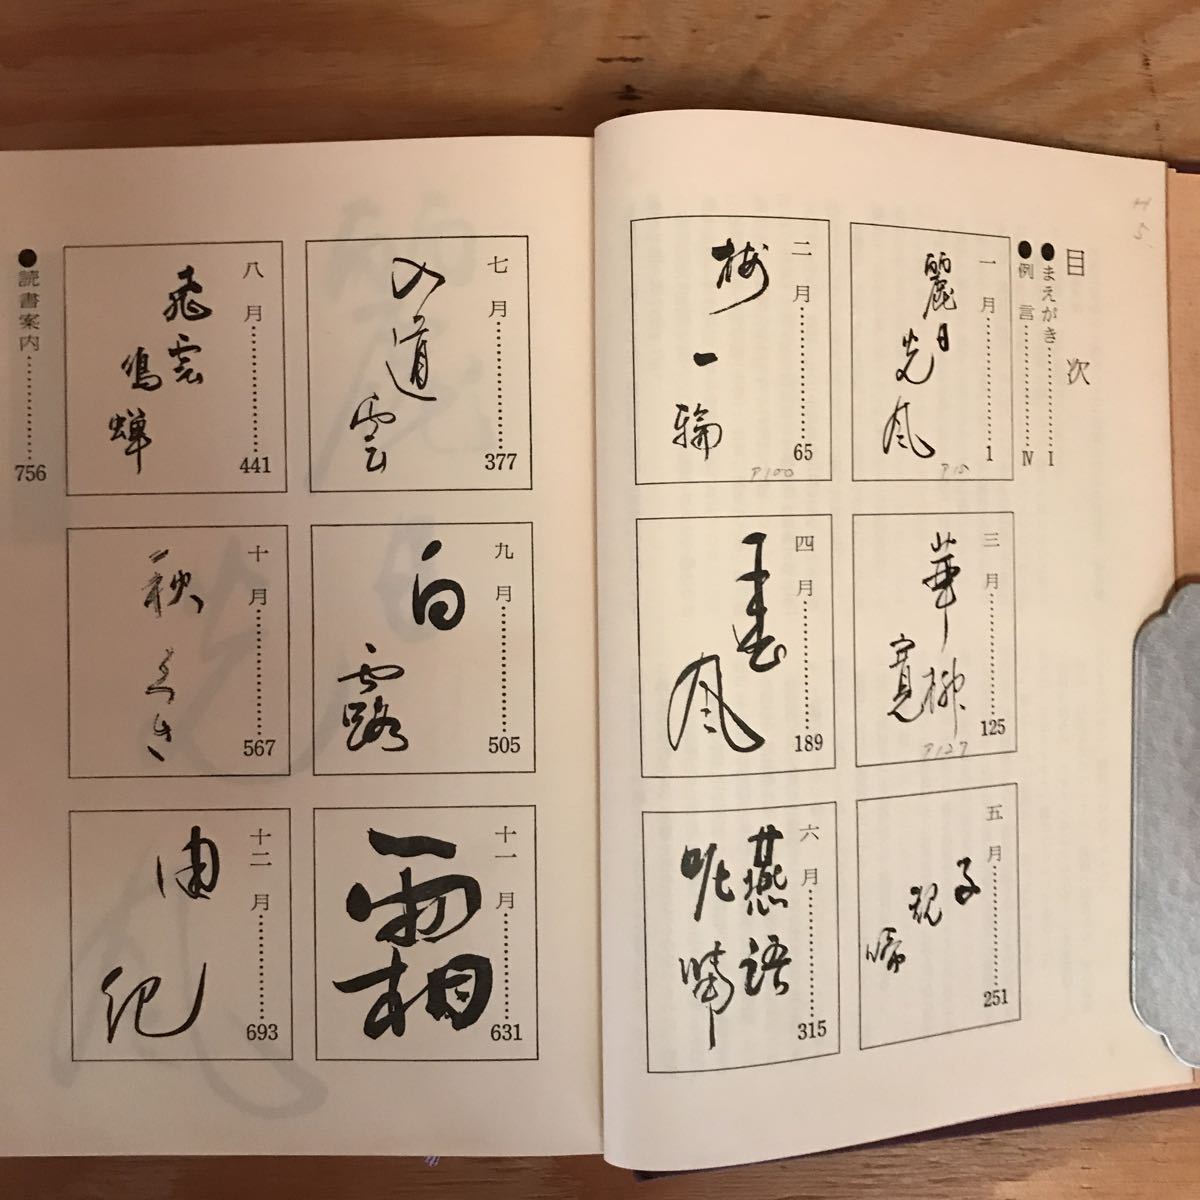 目次
●まえがき……………Ⅰ
●例言……………Ⅳ
一月……………1
麗日
光風
P10
二月……………65
梅
一
輪
P100
三月……………125
華柳
寛
P127
四月……………189
風
五月……………251
子
規
啼
六月……………315
燕語
呢喃
七月……………377
入
道
雲
八月……………441
飛雲
鳴蝉
九月……………505
白
露
十月……………567
秋
十一月……………631
霜
十二月……………693
由
紀
●読書案内……………756